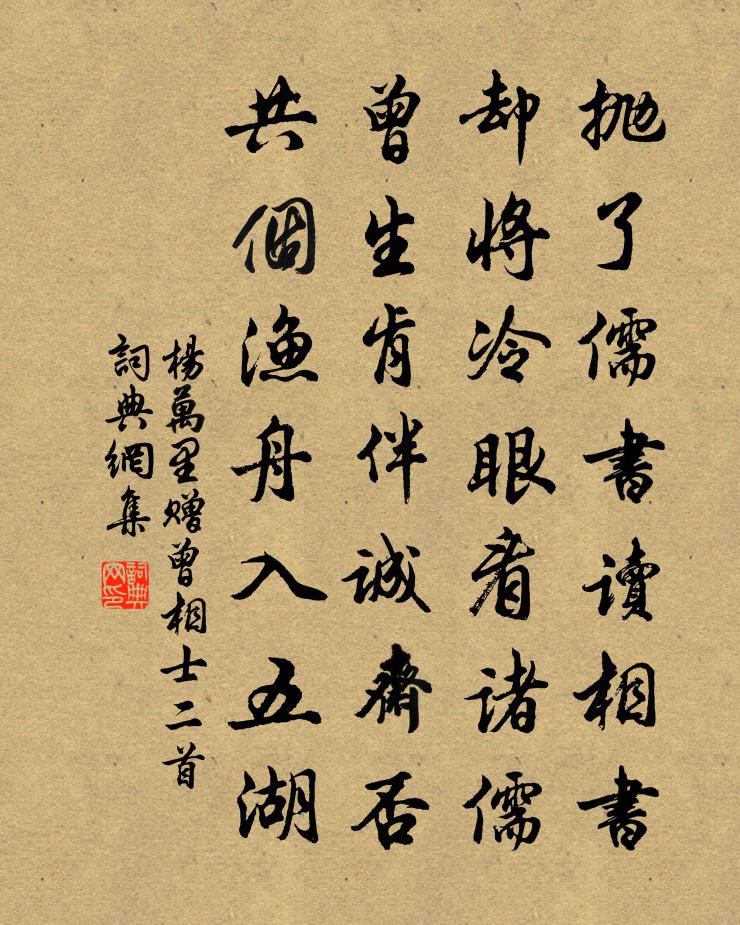 抛了儒書讀相書
却將冷眼看諸儒
曾生肯伴誠齋否
共個漁舟入五湖
楊萬里贈曾相士二首
詞典網集
詞典網印